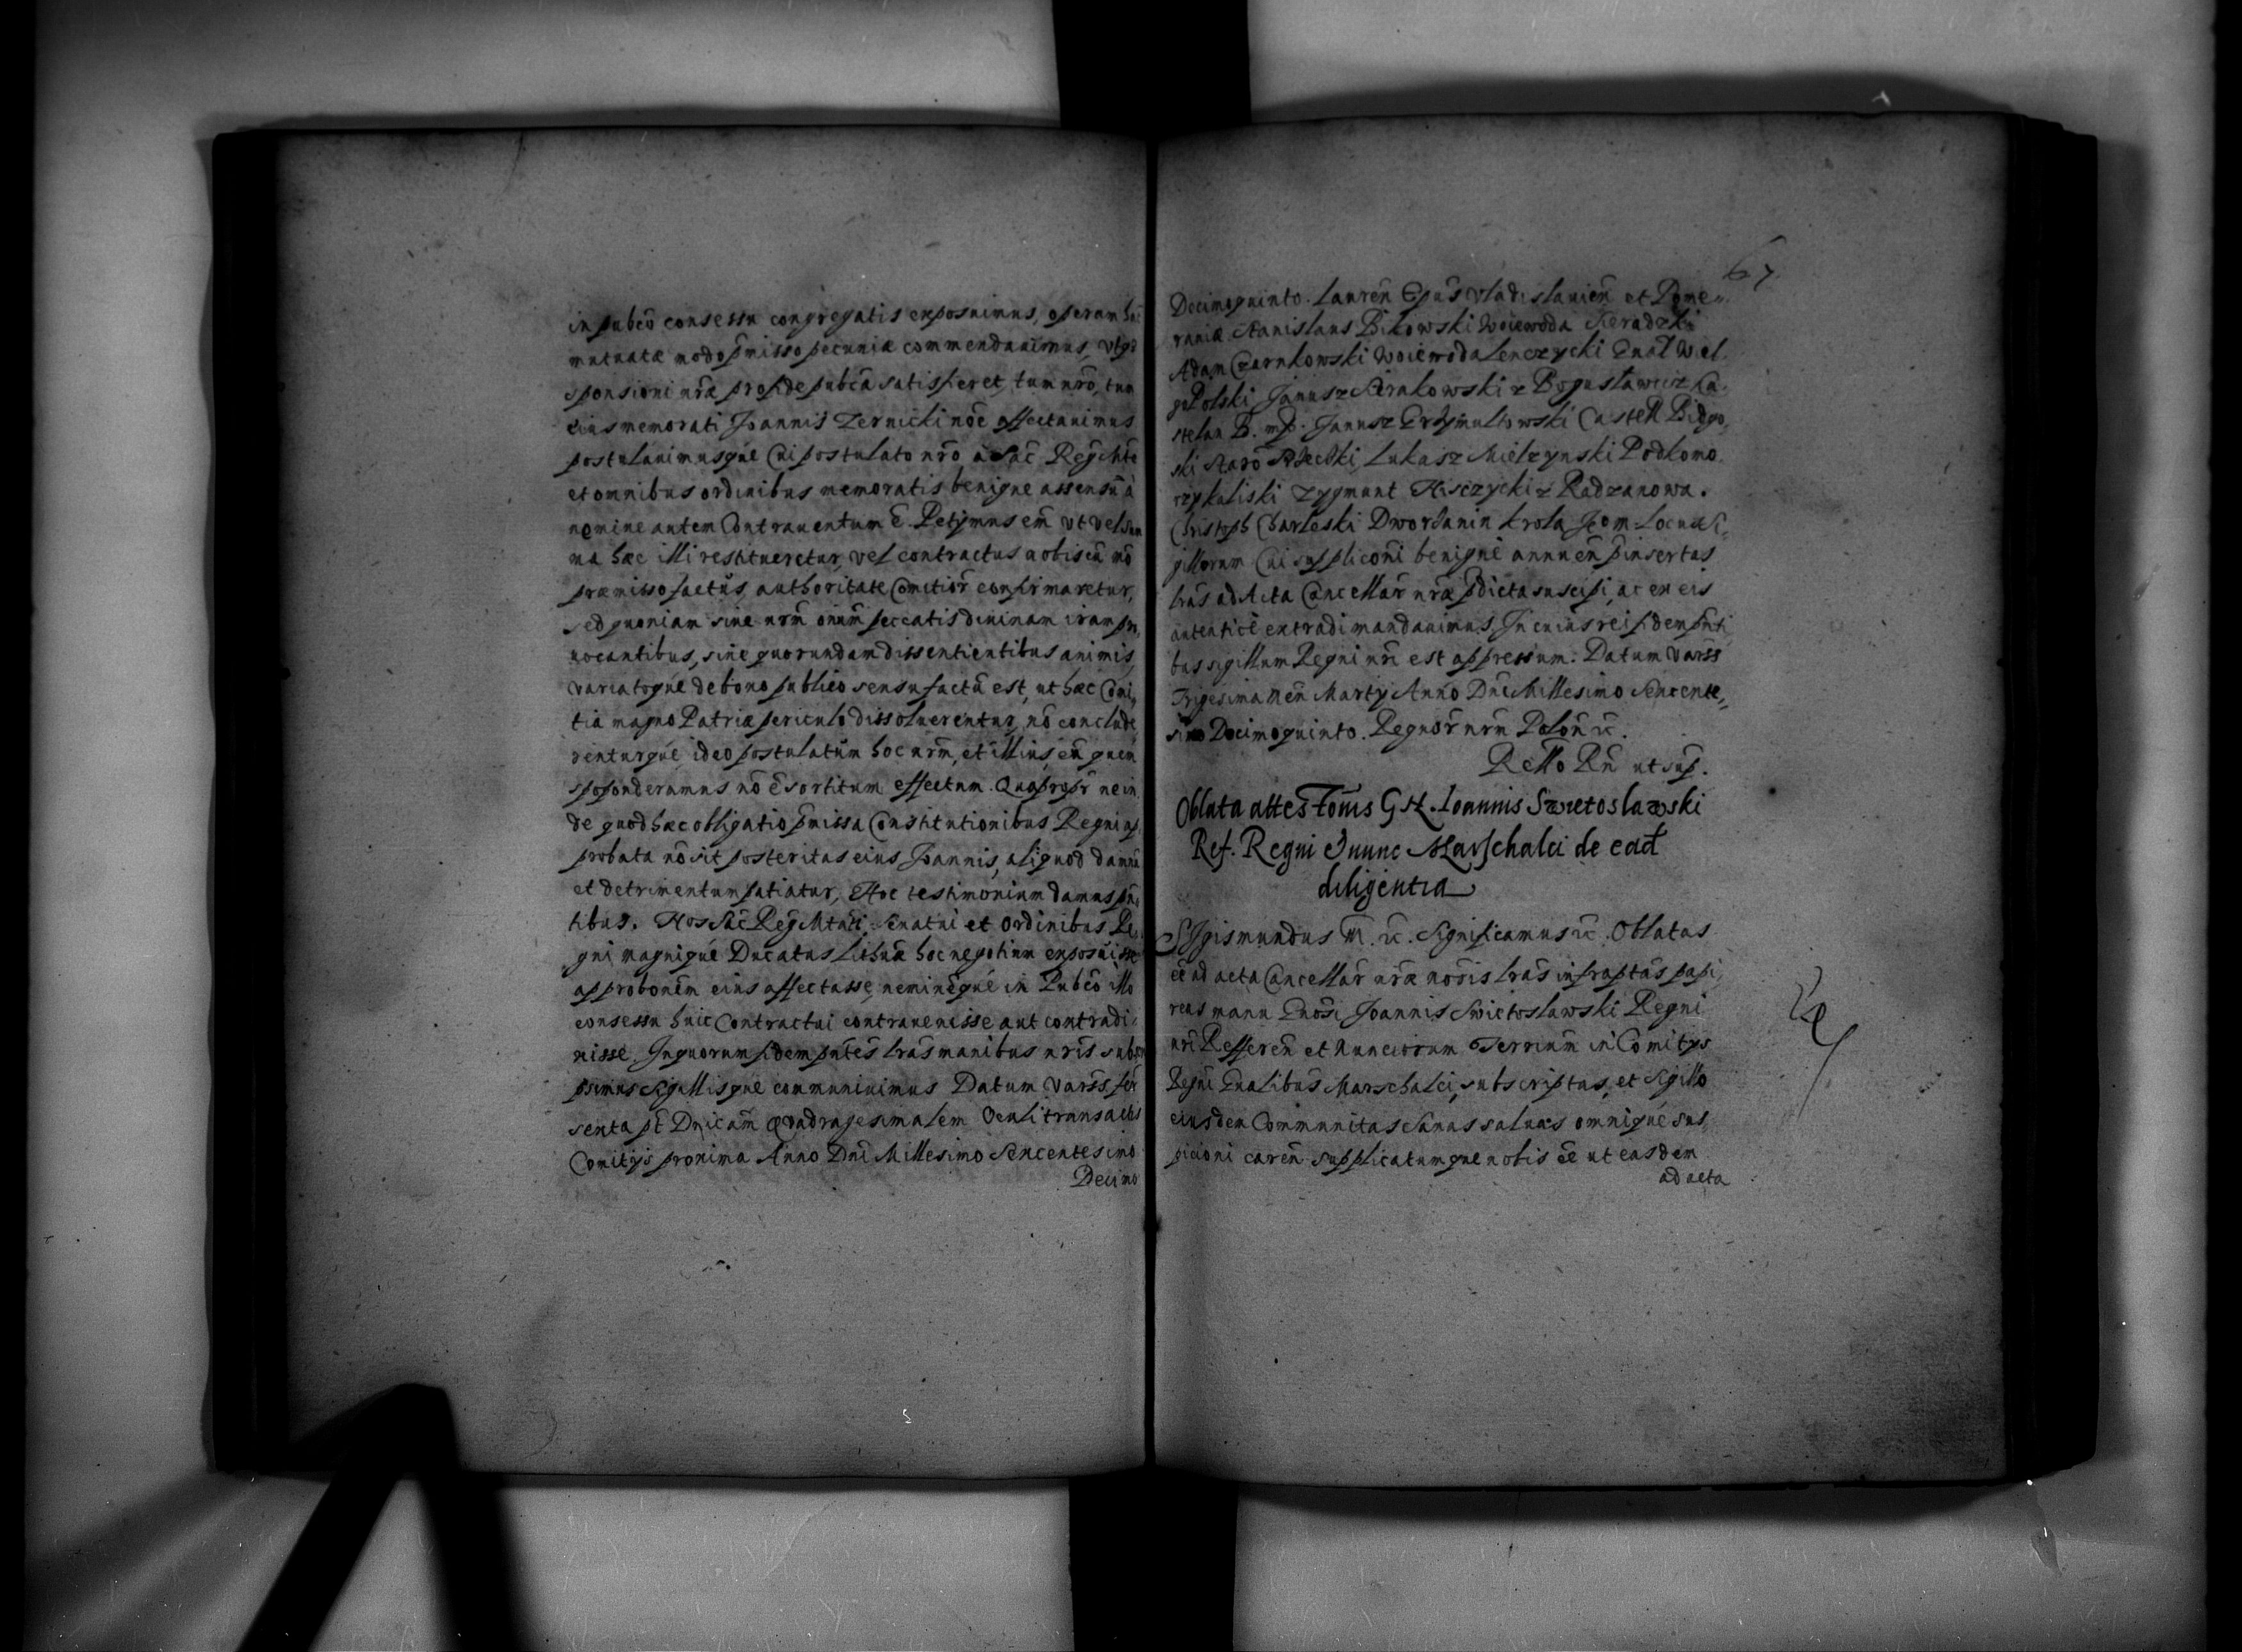 in pubco consessu congregatis exposuimus, operam
mutuatæ modo pmisso pecuniæ commendauimus,
sponsioni nræ pro fide pubca satisfieret, tum nro, tum
eius memorati Joannis Zernicki noe affectauimus
postulauimusque Cui postulato nro a Sac Reg Mte
et omnibus ordinibus memoratis benigne assensu a
nomine autem Contrauentum ē. Petÿmus em vt vel sum
ma hæc illi restitueretur, vel contractus nobiscū mō
præmisso factus authoritate Comitior confirmaretur,
sed quoniam siue nrm onium peccatis diuinam iram pro
uocantibus, siue quorundam dissentientibus animis,
variatoque de bono publico sensu factū est, ut hæc Comi,
tia magno Patriæ periculo dissoluerentur, nō conclude
renturque, ideo postulatum hoc nrm, et illius, cū quem
spoponderamus nō ē sortitum effectum. Quapropr ne in
de quod hæc obligatio pmissa Constitutionibus Regni ap
probata nō sit posteritas eius Joannis, aliquod damnū
et detrimentum patiatur, Hoc testimonium damus pn,
tibus. Nos Sac Reg Mtati, Senatui et Ordinibus Re,
gni magnique Ducatus Lithuæ hoc negotium exposuisse
approbonem eius affectasse, neminēque in Pubco illo
consessu huic Contractui contrauenisse aut contradi,
xisse. In quorum fidem pntes lras manibus nris subscri
psimus Sigillisque communiuimus Datum Vars fer
sexta pt Dnicam Quadragesimalem Oculi transactis
Comitÿs proxima Anno Dni Millesimo Sexcentesimo
Decimo
67
Decimoquinto. Lauren Epus Vladislauien et Pome,,
raniæ Stanislaus Bikowski Woiewoda Sieradzki
Adam Czarnkowski Woiewoda Lenczycki Gnał Wiel
gePolski Janusz z Bogusławicz Ca,
stelan B. mp. Janusz Grzÿmultowski Castell Bidgo,
ski Staro Lukasz Mielzynski Podkomo
rzy kaliski Zygmunt z Radzanowa.
Christoph Charleski Dworzanin krola Jeom Locus Si,
gillorum Cui suppliconi benigne annuen pinsertas
lras ad Acta Cancellar nræ pdicta suscipi, ac ex eis
autenticē extradi mandauimus. In cuius rei fidem pnti
bus sigillum Regni nri est appressum. Datum Varss
Trigesima Men Martÿ Anno Dni Millesimo Sexcente,,
simo Decimoquinto. Regnor nrm Polon &c.
Relłło Rn ut sup.
Oblata attestonis G M. Ioannis Swietoslawski
Ref. Regni & nunc Marschalci de ead
diligentia
SIgismundus III. &c. Significamus &c. Oblatas
eē ad acta Cancellar nræ nois lras infraptas papi,
reas manu Gnosi Joannis Swietoslawski Regni
nri Refferen et Nunciorum Terrium in Comitÿs
Regni Gnalibus Marschalci, subscriptas, et Sigillo
eiusdem Communitas Sanas saluas omnique sus,
picioni caren Supplicatumque nobis eē ut easdem
ad acta